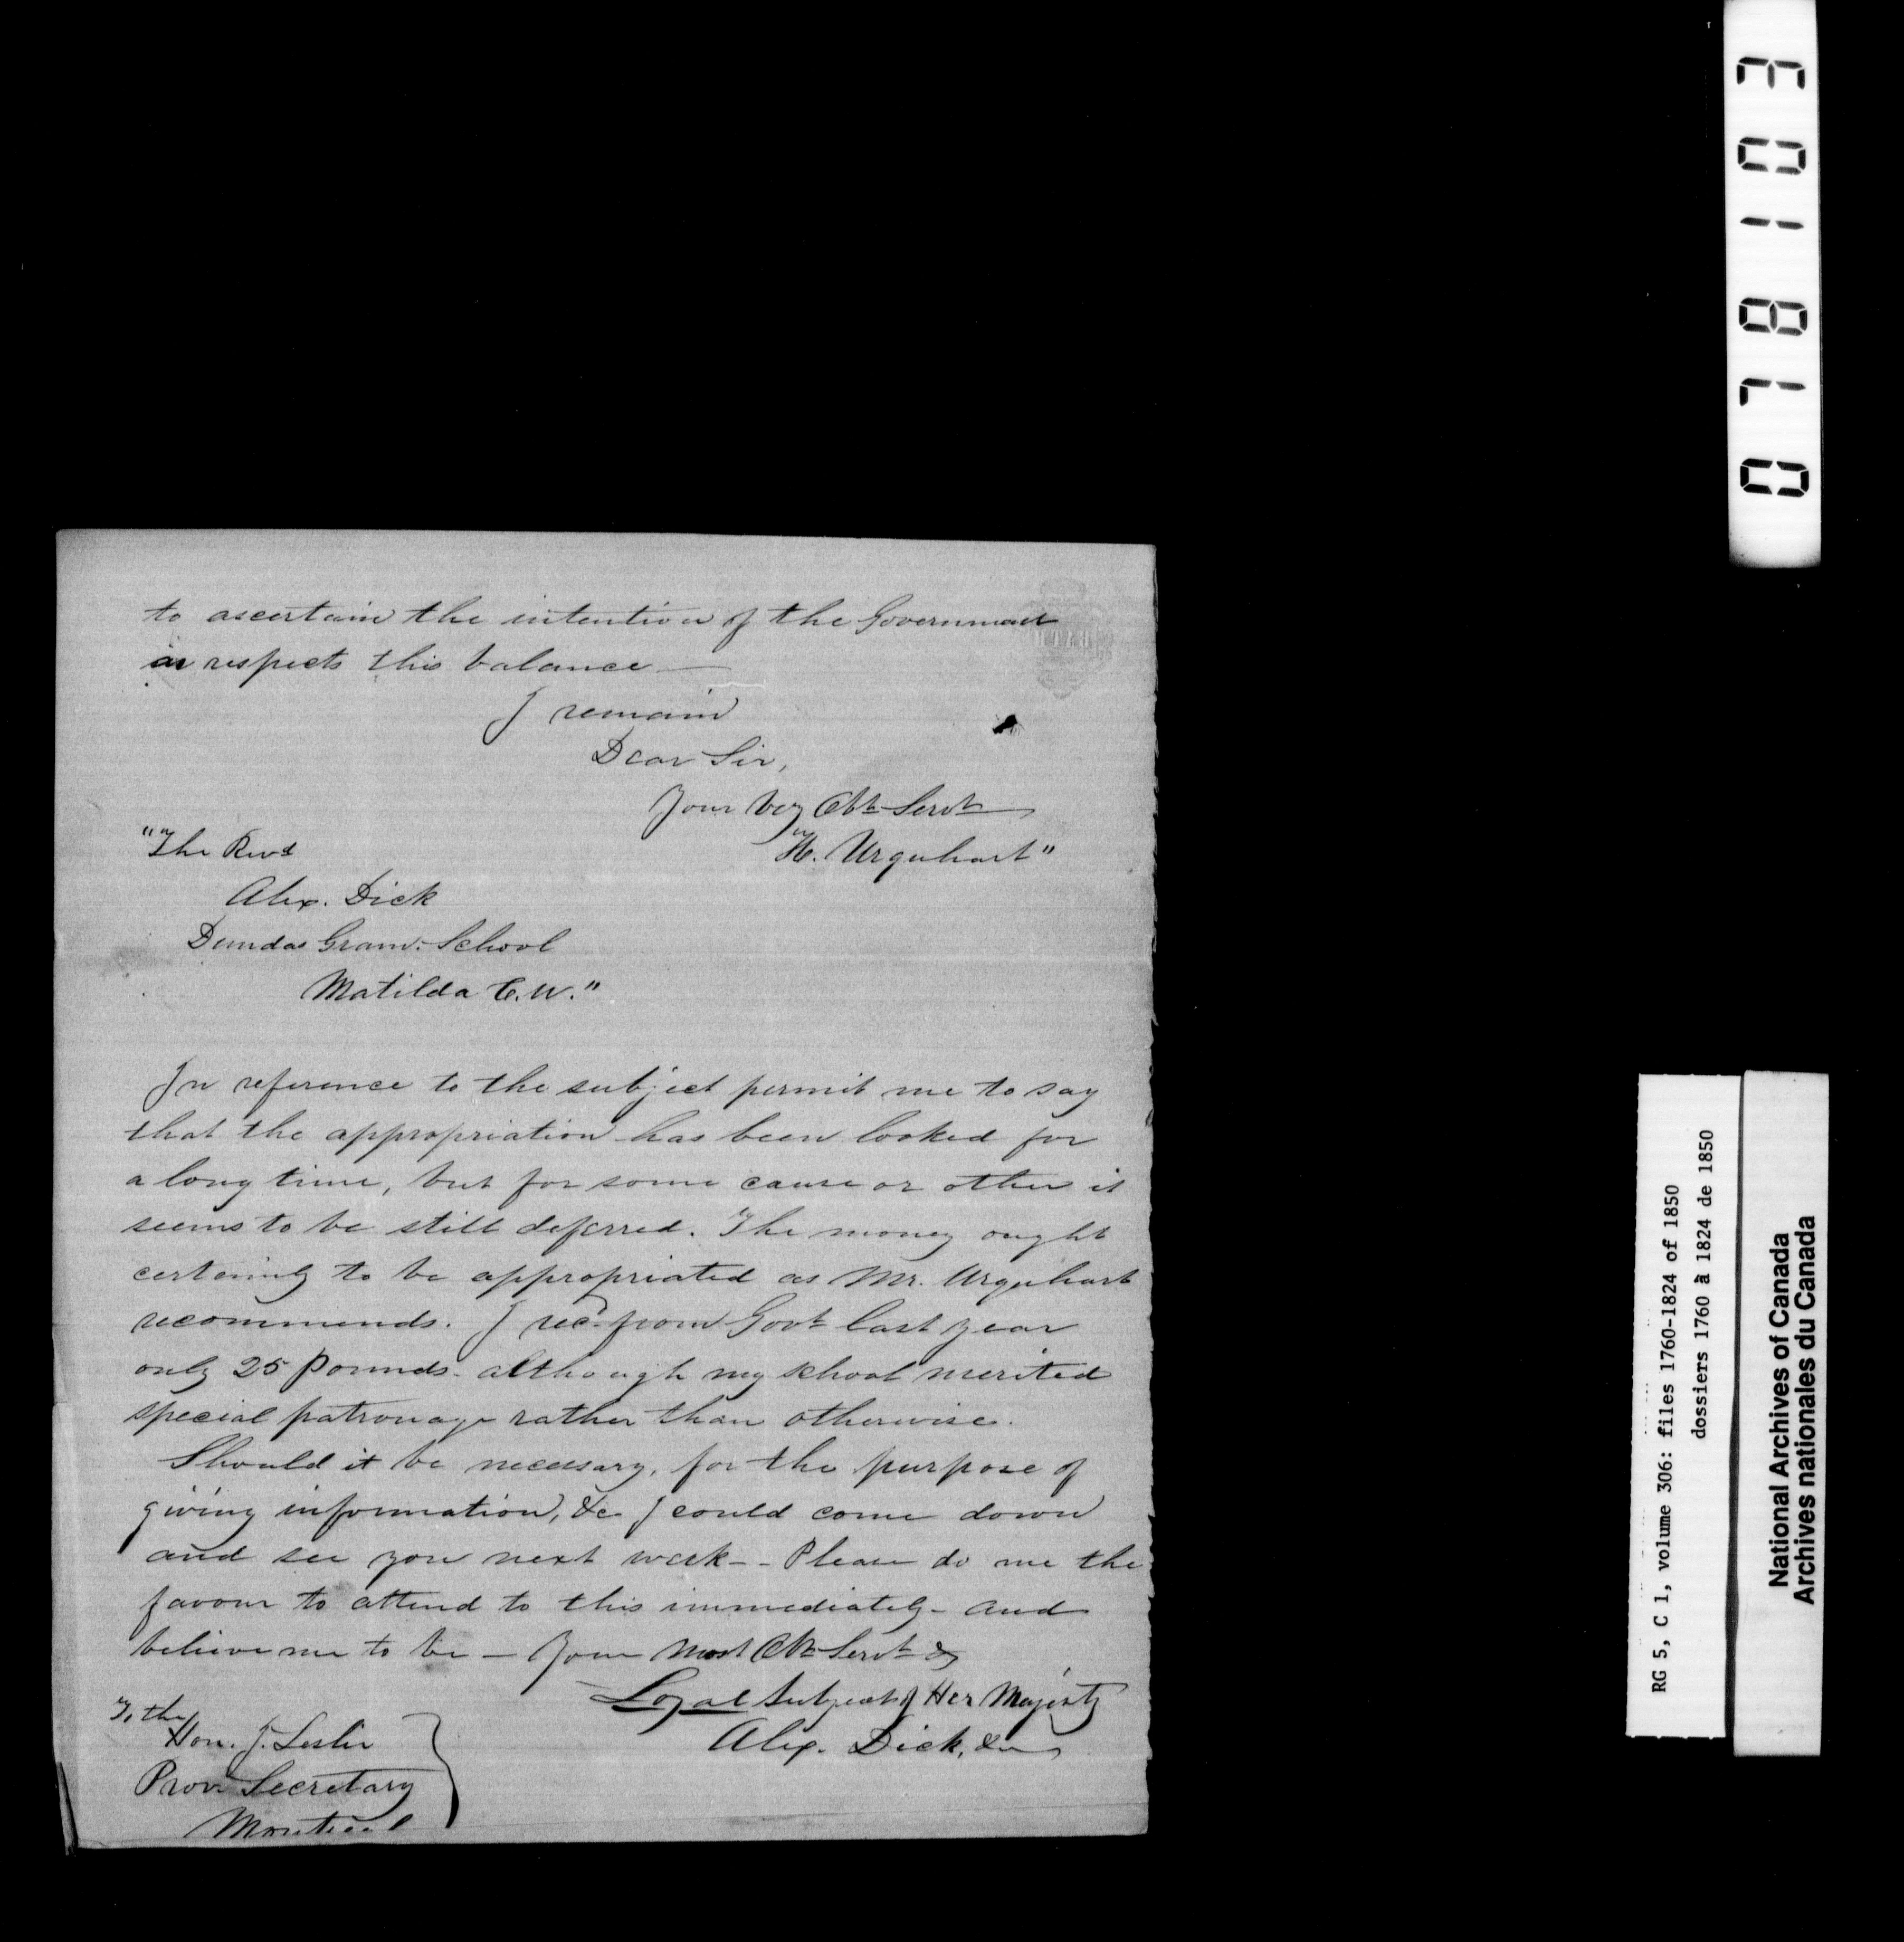 to ascertain the intention of the Government
as respects this balance —
I remain
Dear Sir,
Your Very Obt Servt
"H. Urquhart"
"The Revd
Alex. Dick
Dundas Gram. School
Matilda C.W."
In reference to the subject permit me to say
that the appropriation has been looked for
a long time, but for some cause or other it
seems to be still deferred. The money ought
certainly to be appropriated as Mr. Urquhart
recommends. I recd from Govt last year
only 25 Pounds - although my school merited
special patronage rather than otherwise.
Should it be necessary, for the purpose of
giving information, &c I could come down
and see you next week - - Please do me the
favour to attend to this immediately - and
believe me to be — Your Most Obt Servt &
Loyal Subject of Her Majesty
Alex. Dick, &c
To the
Hon. J. Leslie
Prov. Secretary
Montreal
0718103
RG 5, C 1, volume 306: files 1760-1824 of 1850
dossiers 1760 à 1824 de 1850
National Archives of Canada
Archives nationales du Canada